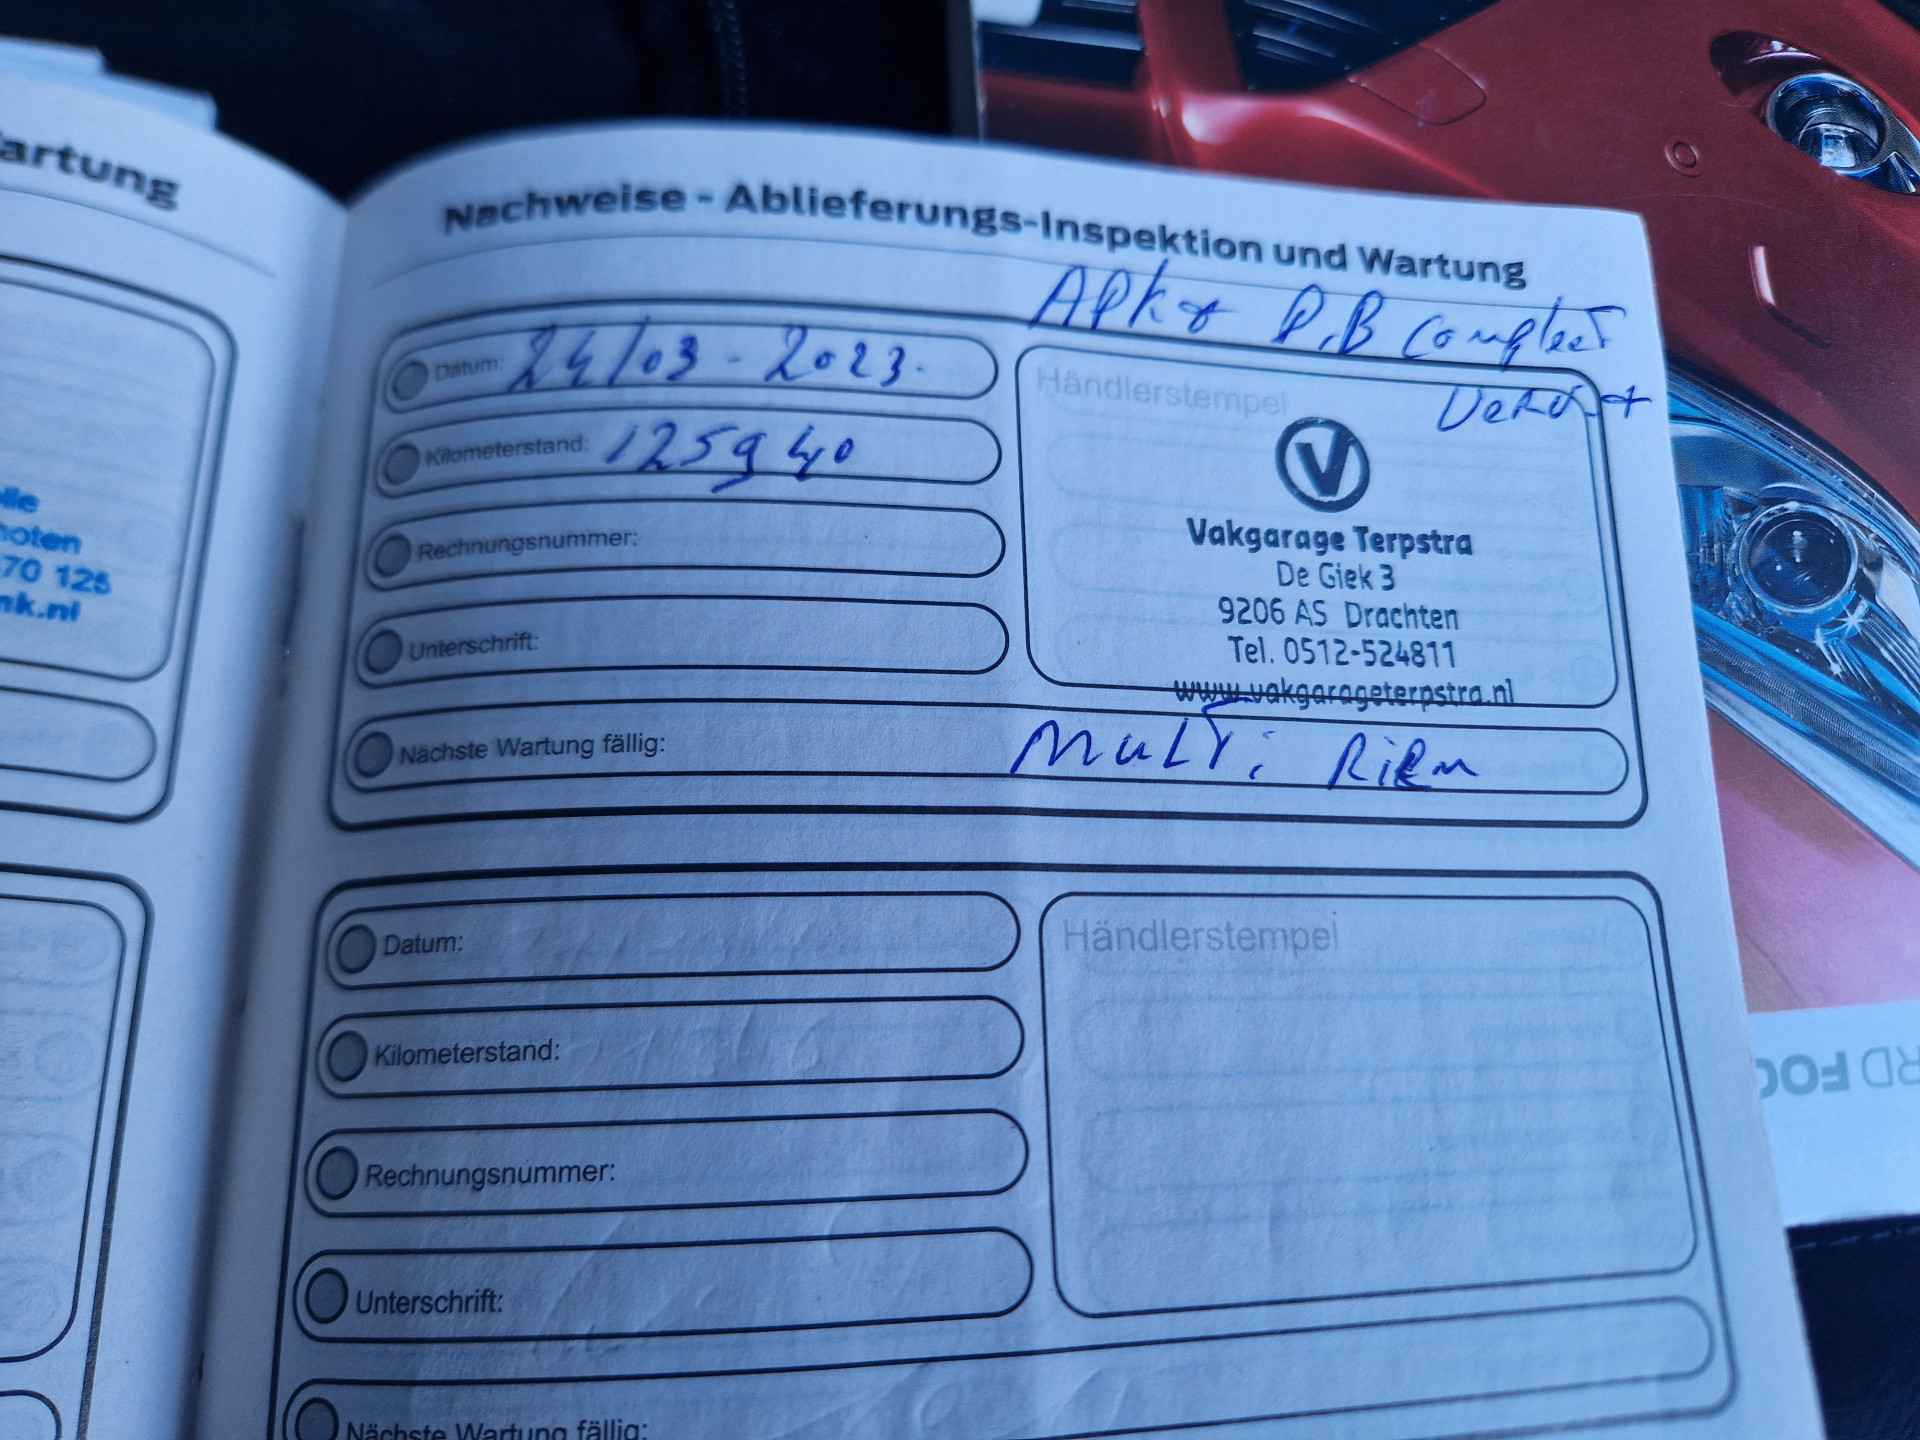 artung
lle
hoten
70 125
nk.nl
Nachweise - Ablieferungs-Inspektion und Wartung
APK + D,B compleet
Datum: 24/03 - 2023.
Kilometerstand: 125940
Rechnungsnummer:
Unterschrift:
Nächste Wartung fällig: Multi Riem
Händlerstempel
V
Vakgarage Terpstra
De Giek 3
9206 AS Drachten
Tel. 0512-524811
www.vakgarageterpstra.nl
Datum:
Kilometerstand:
Rechnungsnummer:
Unterschrift:
Nächste Wartung fällig:
Händlerstempel
RD FOC